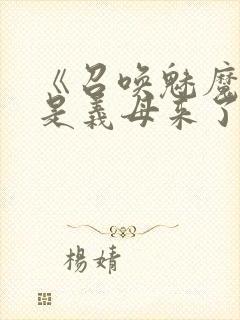 《召唤魅魔
是义母来了
楊婧